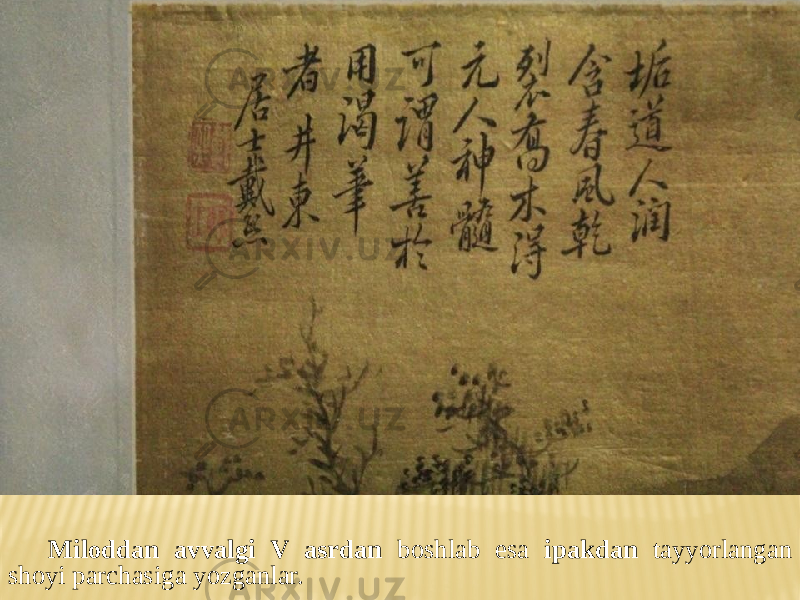 垢道人润
含春風乾
裂喬木得
元人神髓
可謂善於
用渴筆
者 井東
居士戴熙
ARXIV.UZ
ARXIV.UZ
ARXIV.UZ
Miloddan avvalgi V asrdan boshlab esa ipakdan tayyorlangan
shoyi parchasiga yozganlar.
ARXIV.UZ